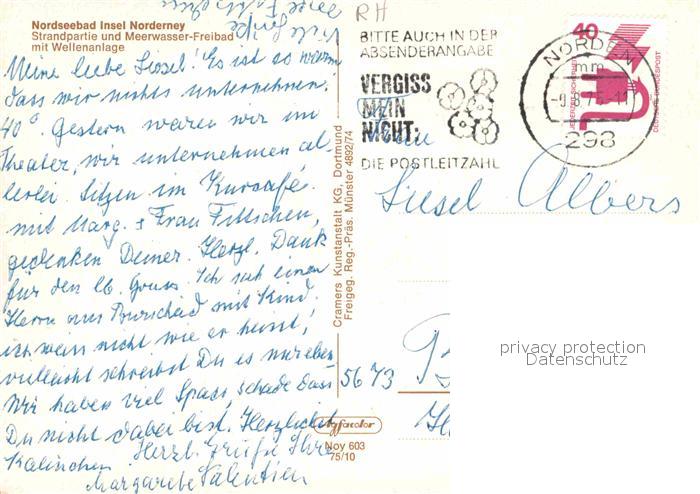 Nordseebad Insel Norderney
Strandpartie und Meerwasser-Freibad
mit Wellenanlage
Meine liebe Liesel! Es ist so warm
dass wir nichts unternehmen.
40°. Gestern waren wir im
Theater, wir unternehmen al
lerlei. Sitzen im Kurcafé.
mit Marg. + Frau Fittschen,
gedenken Deiner. Herzl. Dank
für den lb. Gruss. Ich sah einen
Herrn aus Burscheid mit Kind.
ich weiss nicht wie er heisst,
vielleicht schreibst Du es mir eben
Wir haben viel Spass, schade dass
Du nicht dabei bist. Herzlichst
Kalinchen
Herzl. Grüße Ihre
Margarete Valentien
Viele Grüße
Cramers Kunstanstalt KG, Dortmund
Freigeg. Reg.-Präs. Münster 4892/74
agfacolor
Noy 603
75/10
RH
BITTE AUCH IN DER
ABSENDERANGABE
VERGISS
MEIN
NICHT:
DIE POSTLEITZAHL
NORDEN
mm
298
40
JEDERZEIT SICHERHEIT
DEUTSCHE BUNDESPOST
Liesel Albers
5673
privacy protection
Datenschutz